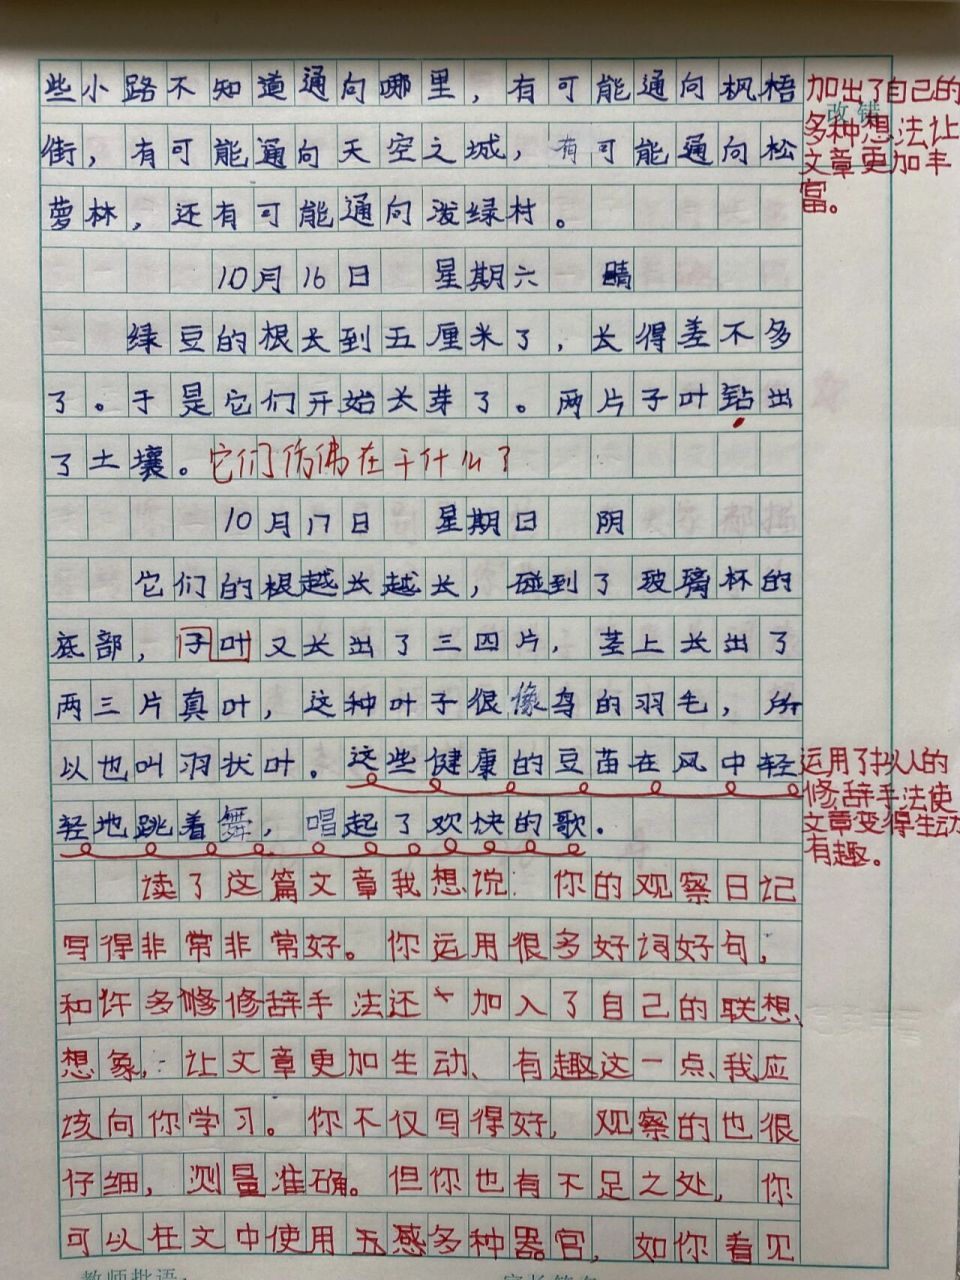 些小路不知道通向哪里，有可能通向枫梧
街，有可能通向天空之城，有可能通向松
萝林，还有可能通向泼绿村。
加出了自己的
改错
多种想法让
文章更加丰
富。
10月16日 星期六 晴
绿豆的根长到五厘米了，长得差不多
了。于是它们开始长芽了。两片子叶钻出
了土壤。它们仿佛在干什么？
10月17日 星期日 阴
它们的根越长越长，碰到了玻璃杯的
底部，子叶又长出了三四片，茎上长出了
两三片真叶，这种叶子很像鸟的羽毛，所
以也叫羽状叶。这些健康的豆苗在风中轻
轻地跳着舞，唱起了欢快的歌。
运用了拟人的
修辞手法使
文章变得生动
有趣。
读了这篇文章我想说：你的观察日记
写得非常非常好。你运用很多好词好句，
和许多修修辞手法还 加入了自己的联想、
想象，让文章更加生动、有趣这一点我应
该向你学习。你不仅写得好，观察的也很
仔细，测量准确。但你也有不足之处，你
可以在文中使用五感多种器官，如你看见
教师批语：